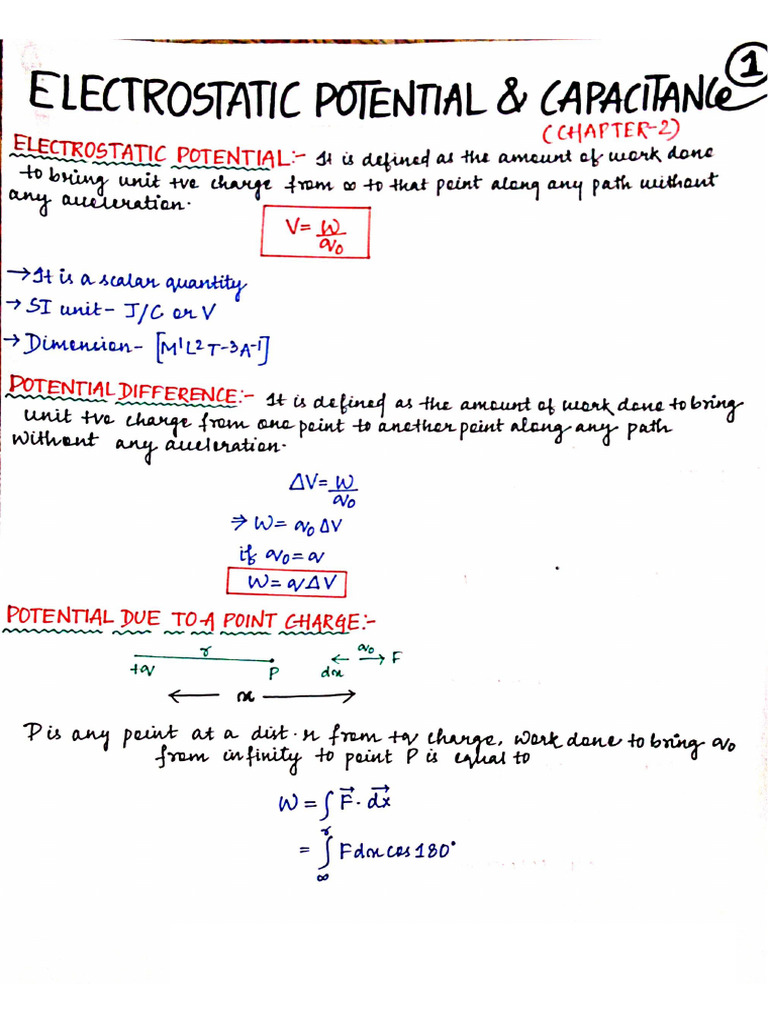 1
ELECTROSTATIC POTENTIAL & CAPACITANCE
(CHAPTER-2)
ELECTROSTATIC POTENTIAL:- It is defined as the amount of work done
to bring unit +ve charge from ∞ to that point along any path without
any acceleration.
V= W/q0
→ It is a scalar quantity
→ SI unit- J/C or V
→ Dimension- [M¹L²T-³A-¹]
POTENTIAL DIFFERENCE:- It is defined as the amount of work done to bring
unit +ve charge from one point to another point along any path
without any acceleration.
ΔV= W/q0
⇒ W= q0 ΔV
if q0=q
W= qΔV
POTENTIAL DUE TO A POINT CHARGE:-
r q0
+q P dx ← → F
← x →
P is any point at a dist. r from +q charge, work done to bring q0
from infinity to point P is equal to
W = ∫ F⃗. dx⃗
= ∫∞^r Fdx cos 180°